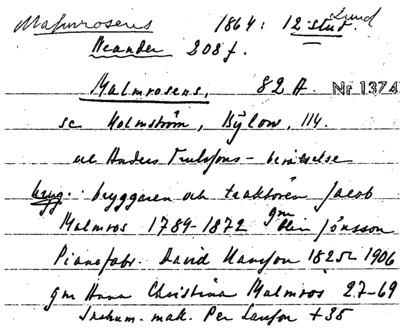 Malmrosens 1864: 12 stud. Lund
Neander 208 f.
Malmrosens, 82 A. Nr 1374
se Holmström, Bülow, 114.
och Anders Trulssons - berättelse
bryggaren och traktören Jacob
Malmros 1789-1872 gm Elin Jönsson
Pianofabr. David Hansson 1825-1906
gm Anna Christina Malmros 27-69
Instrum. mak. Per Larsson + 35